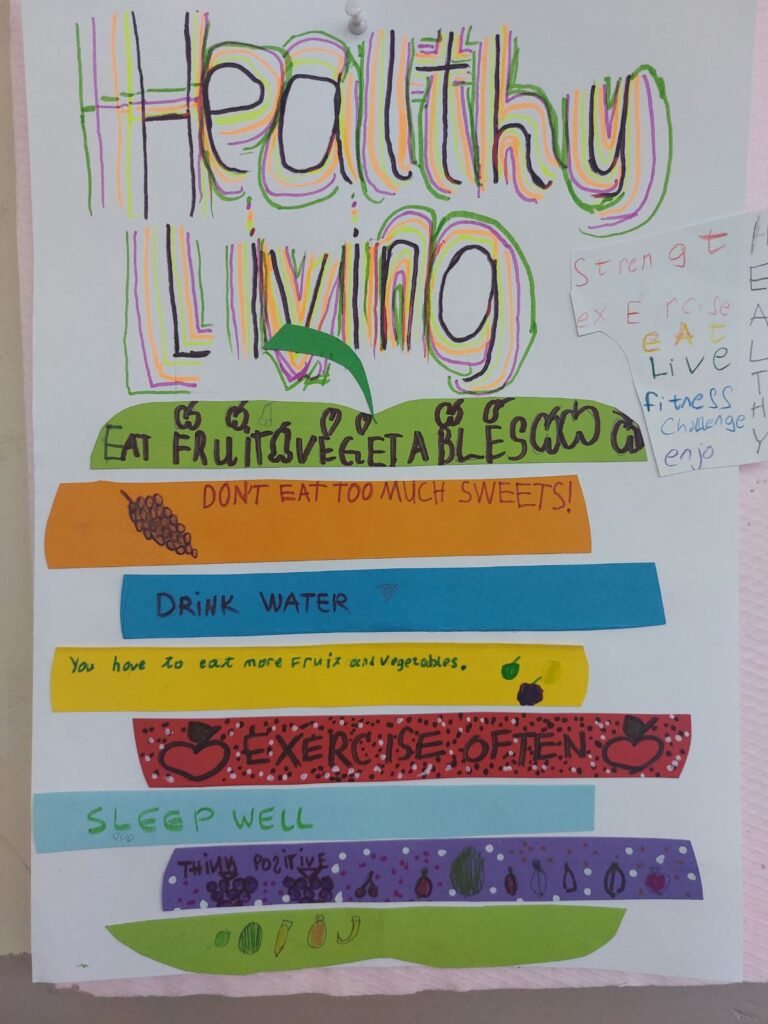 Healthy
Living
Strengt
exErcise
eAt
Live
fitness
Challenge
enjo
HEALTHY
EAT FRUIT&VEGETABLES
DONT EAT TOO MUCH SWEETS!
DRINK WATER
You have to eat more Fruit and Vegetables.
EXERCISE OFTEN
SLEEP WELL
THINK POZITIVE